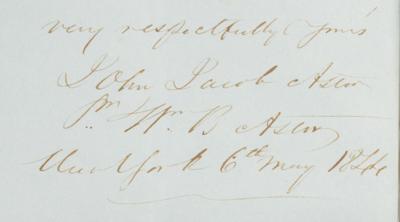 very respectfully Yours
John Jacob Astor
pr. Wm B Astor
New York 6th May 1846